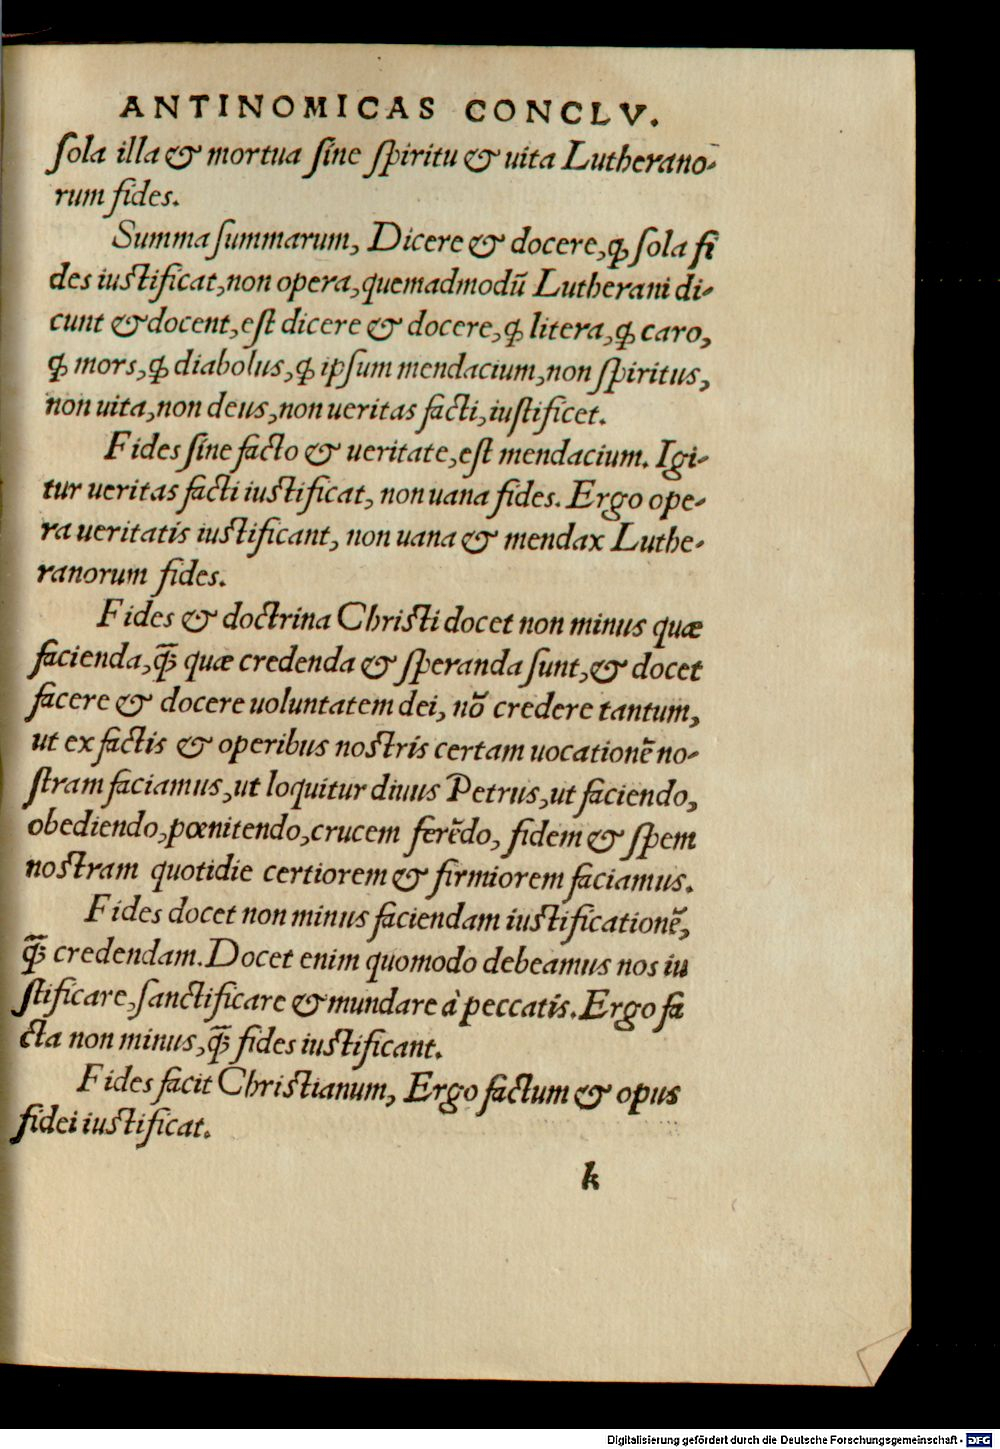 ANTINOMICAS CONCLV.
ſola illa & mortua ſine ſpiritu & uita Lutherano⸗
rum fides.
Summa ſummarum, Dicere & docere, ꝙ ſola fi
des iuſtificat, non opera, quemadmodū Lutherani di⸗
cunt & docent, eſt dicere & docere, ꝙ litera, ꝙ caro,
ꝙ mors, ꝙ diabolus, ꝙ ipſum mendacium, non ſpiritus,
non uita, non deus, non ueritas facti, iuſtificet.
Fides ſine facto & ueritate, eſt mendacium. Igi⸗
tur ueritas facti iuſtificat, non uana fides. Ergo ope⸗
ra ueritatis iuſtificant, non uana & mendax Luthe⸗
ranorum fides.
Fides & doctrina Chriſti docet non minus quæ
facienda, ꝙ̃ quæ credenda & ſperanda ſunt, & docet
facere & docere uoluntatem dei, nō credere tantum,
ut ex factis & operibus noſtris certam uocationē no⸗
ſtram faciamus, ut loquitur diuus Petrus, ut faciendo,
obediendo, pœnitendo, crucem ferēdo, fidem & ſpem
noſtram quotidie certiorem & firmiorem faciamus.
Fides docet non minus faciendam iuſtificationē,
ꝙ̃ credendam. Docet enim quomodo debeamus nos iu
ſtificare, ſanctificare & mundare à peccatis. Ergo fa
cta non minus, ꝙ̃ fides iuſtificant.
Fides facit Chriſtianum, Ergo factum & opus
fidei iuſtificat.
k
Digitalisierung gefördert durch die Deutsche Forschungsgemeinschaft - DFG